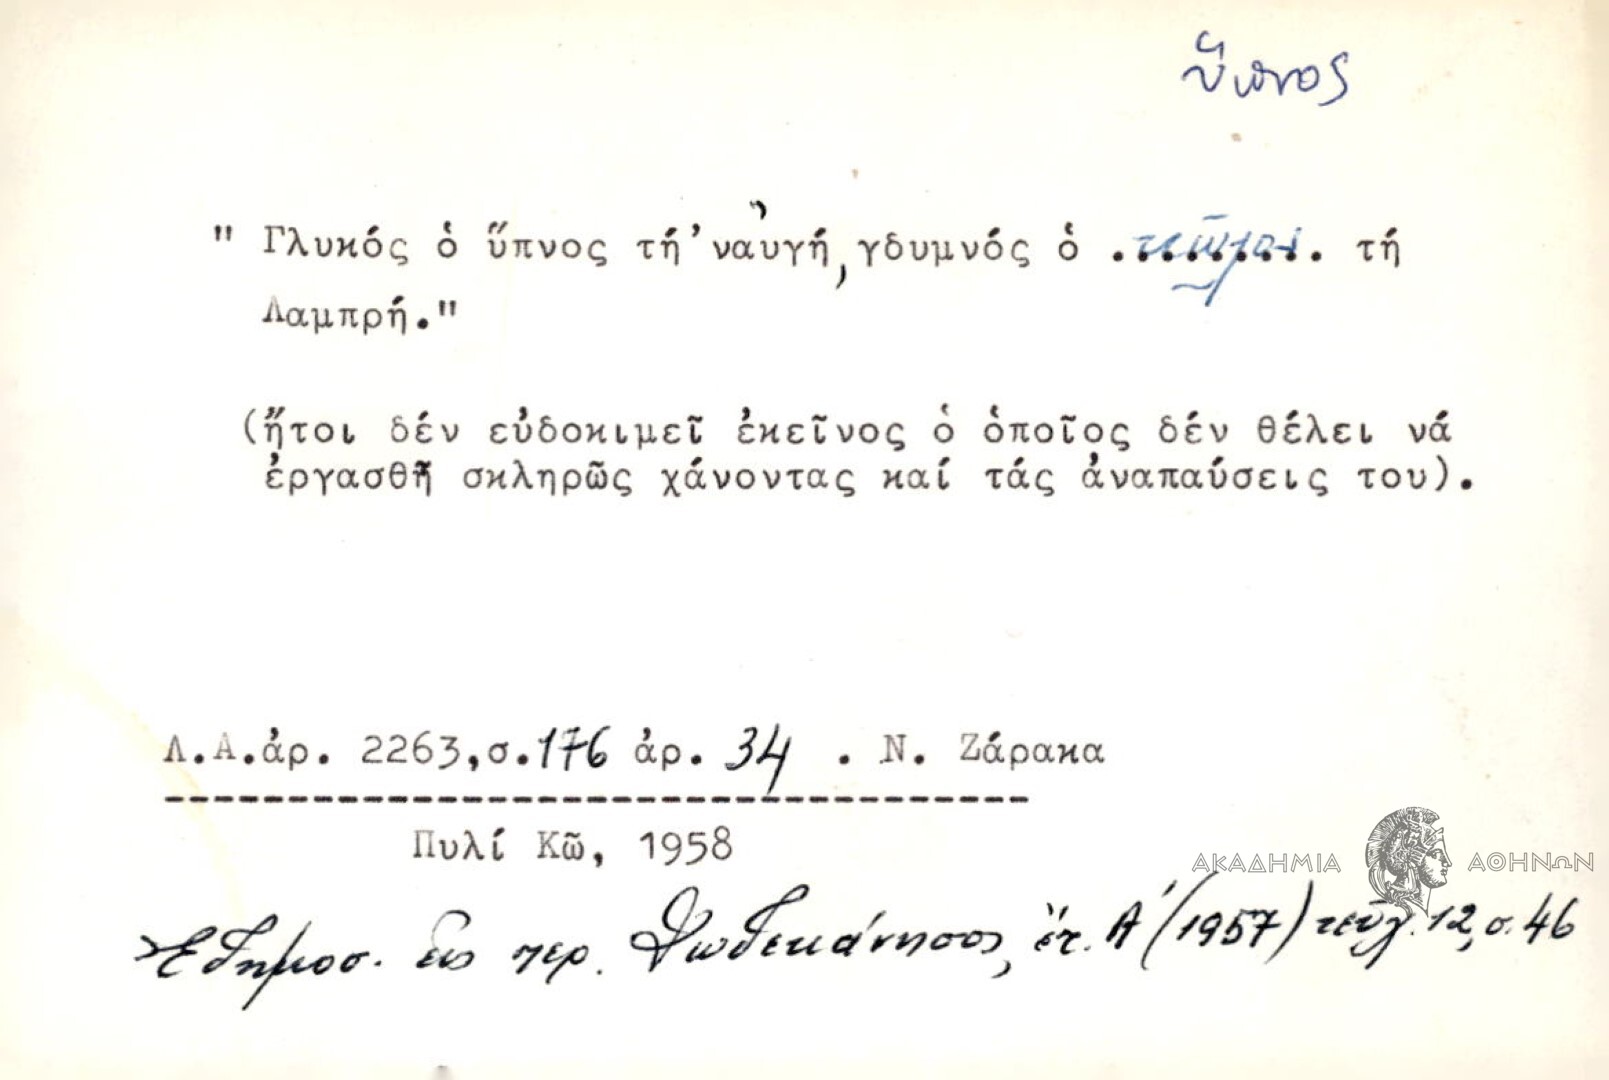 ὕπνος
" Γλυκός ὁ ὕπνος τή 'ναυγή, γδυμνός ὁ ......... τή
Λαμπρή."
(ἤτοι δέν εὐδοκιμεῖ ἐκεῖνος ὁ ὁποῖος δέν θέλει νά
ἐργασθῇ σκληρῶς χάνοντας καί τάς ἀναπαύσεις του).
Λ.Α.ἀρ. 2263,σ.176 ἀρ. 34 . Ν. Ζάρακα
Πυλί Κῶ, 1958
ΑΚΑΔΗΜΙΑ ΑΘΗΝΩΝ
Ἐδημοσ. εἰς περ. Δωδεκάνησος, ἔτ. Α' (1957) τεῦχ. 12, σ. 46